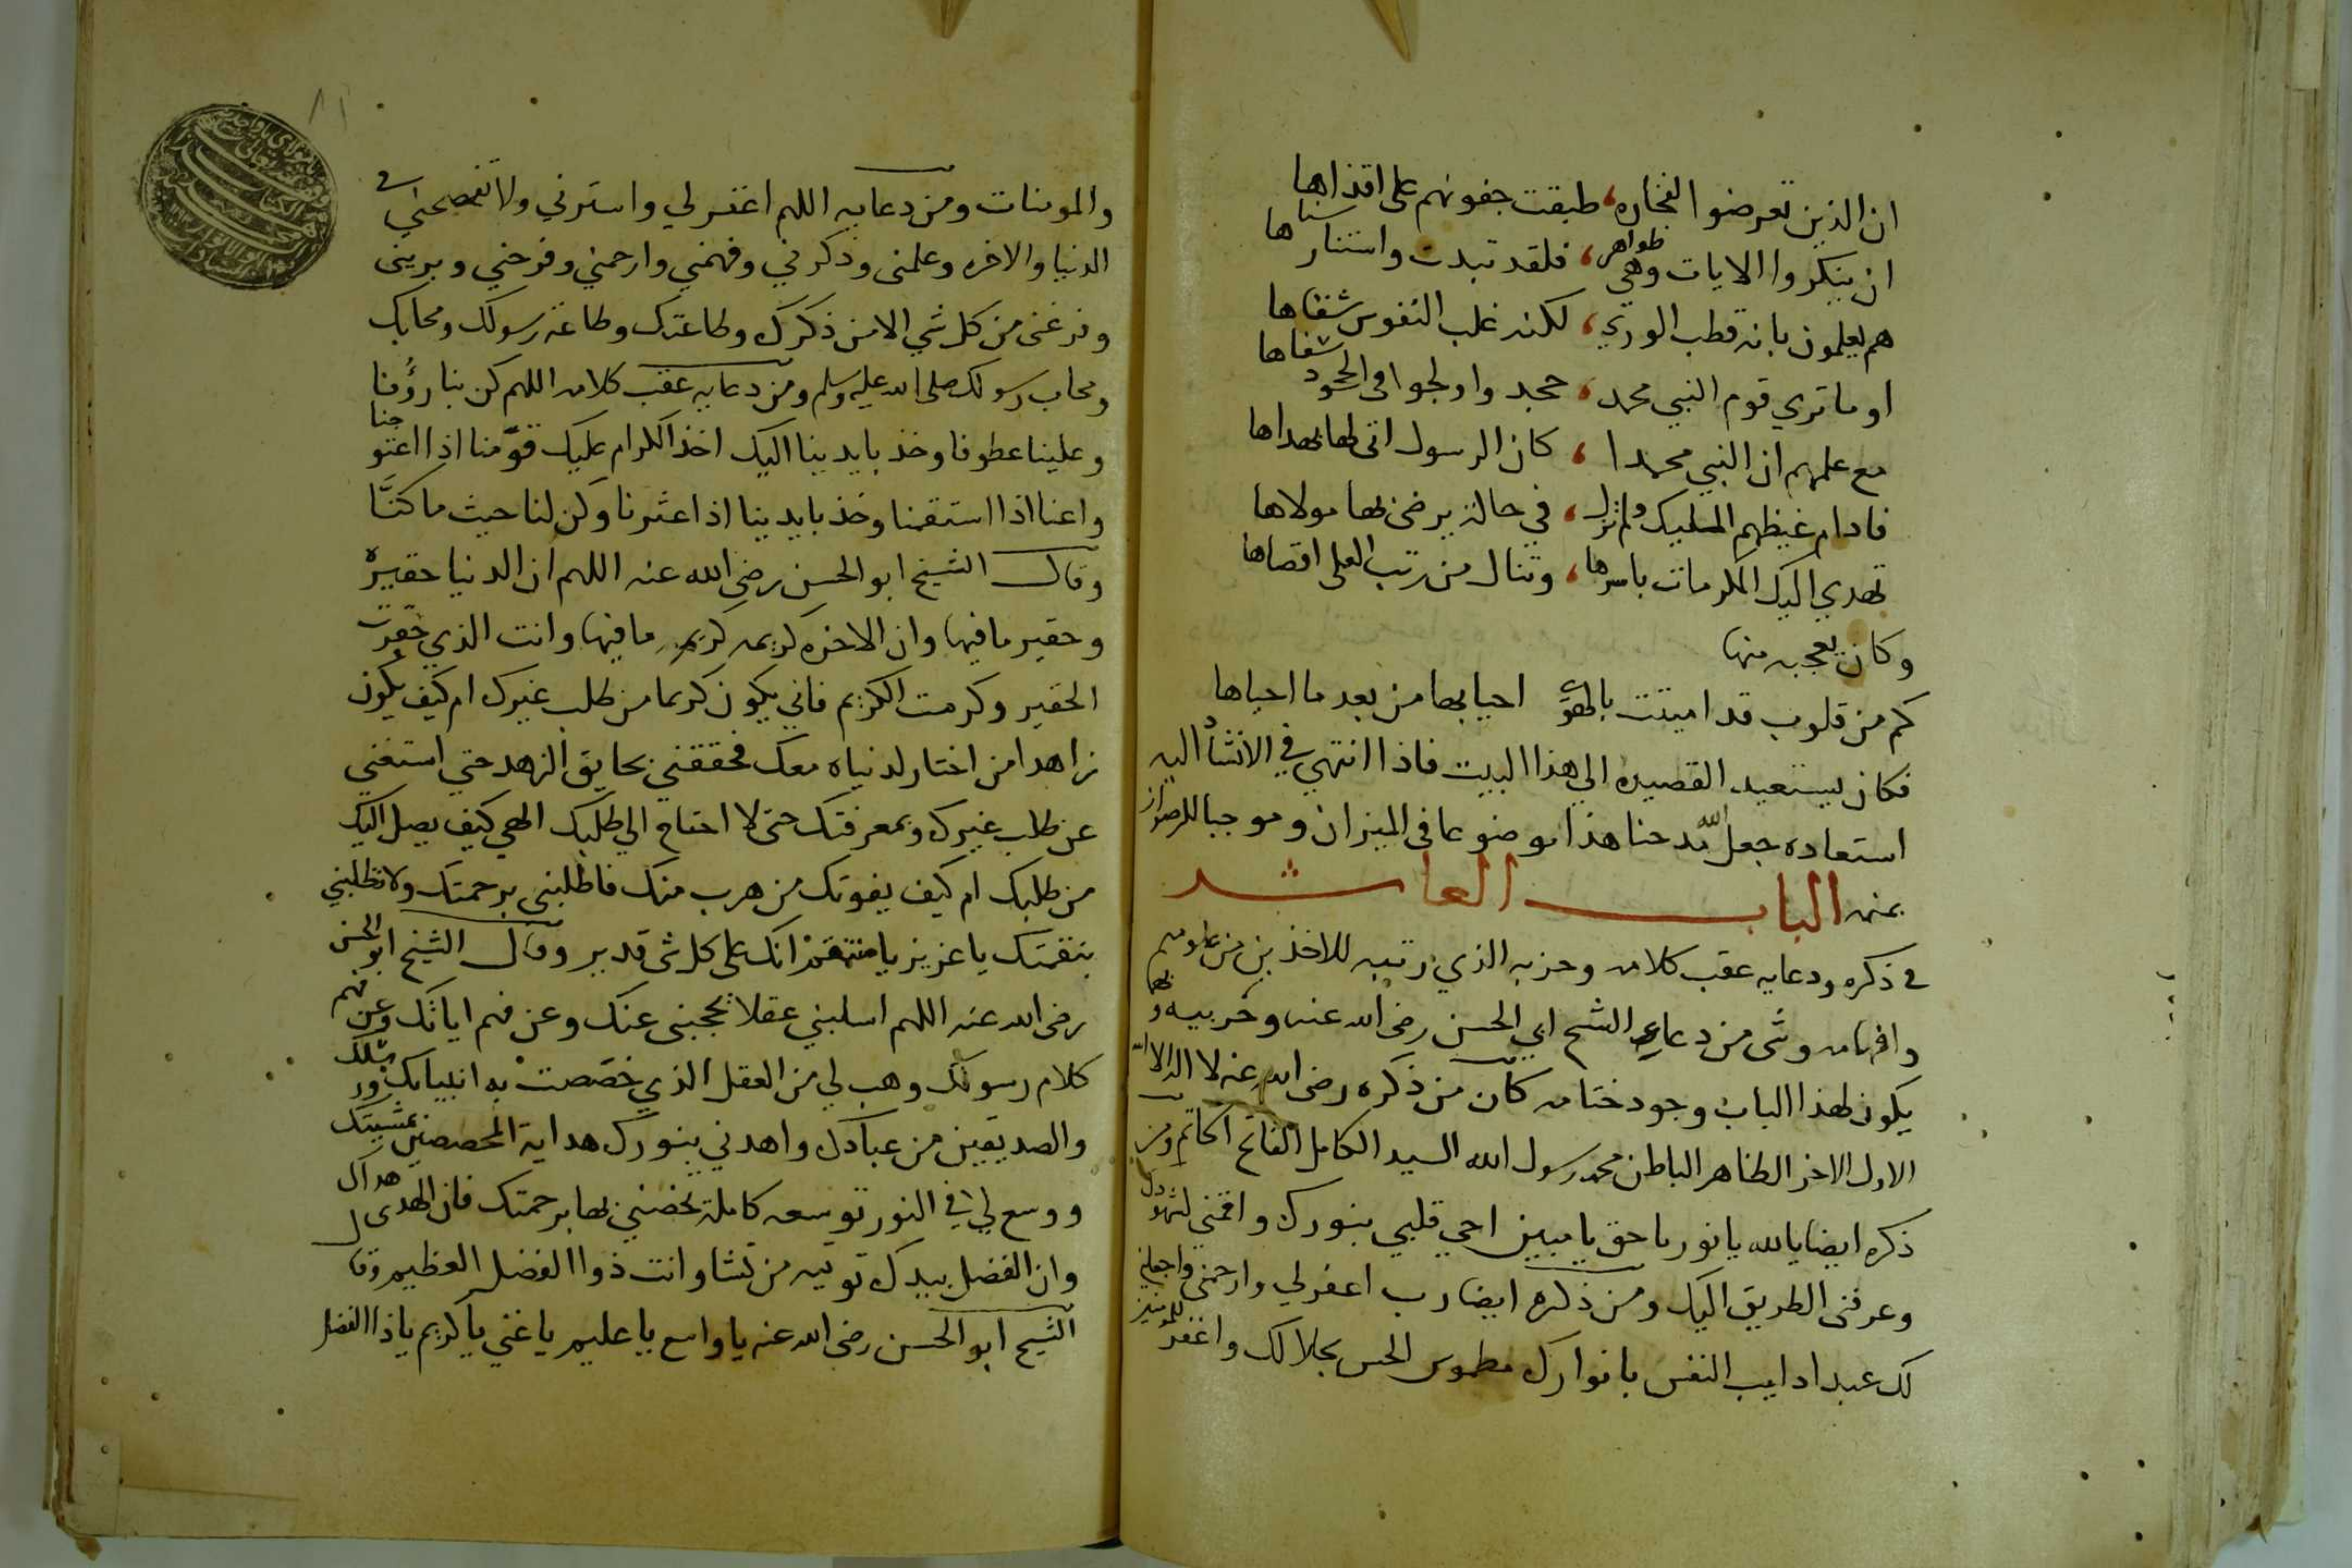 ان الذين تعرضوا لفخاره، طبقت جفونهم على اقذاها
ان ينكروا الايات وهي ظواهر، فلقد تبدت واستنار سناها
هم يعلمون بانه قطب الوري، لكنه غلب النفوس شقاها
او ما تري قوم النبي محمد، حجد واولجوا في الجحود شفاها
مع علمهم ان النبي محمدا، كان الرسول اتى لها بهداها
فادام غيظهم المليك ولم تزل، في حالة يرضى بها مولاها
تهدي اليك المكرمات باسرها، وتنال من رتب العلى اقصاها
وكان يعجبه منها
كم من قلوب قد اميتت بالهوى احيا بها من بعد ما احياها
فكان يستعيد القصيده الي هذا البيت فاذا انتهي في الانشاء اليه
استعاده جعل الله مدحنا هذا موضوعا في الميزان وموجبا للرضوان
بمنه الباب العاشر
في ذكره ودعايه عقب كلامه وحزبه الذي رتبه للاخذين من علومهم
وافهامه وشى من دعاء الشيخ ابي الحسن رضى الله عنه وحزبيه وبها
يكون لهذا الباب وجود ختامه كان من ذكره رضى الله عنه لا اله الا الله
الاول الاخر الظاهر الباطن محمد رسول الله السيد الكامل الفاتح الخاتم ومن
ذكره ايضا يا الله يا نور يا حق يا مبين احي قلبي بنورك واقمني لشهودك
وعرفنى الطريق اليك ومن ذكره ايضا رب اغفر لي وارحمني واجعلني
لك عبدا دايب النفس بانوارك مطموس الحس بجلالك واغفر للمومنين
والمومنات ومن دعايه اللهم اغفر لي واسترني ولا تفضحني في
الدنيا والاخره وعلمنى وذكرني وفهمني وارحمني وفرحني وبريني
وفرغنى من كل شي الا من ذكرك وطاعتك وطاعة رسولك ومحابك
ومحاب رسولك صلى الله عليه وسلم ومن دعايه عقب كلامه اللهم كن بنا رؤفا
وعلينا عطوفا وخذ بايدينا اليك اخذ الكرام عليك قوّمنا اذا اعوججنا
واعنا اذا استقمنا وخذ بايدينا اذا عثرنا وكن لنا حيث ما كنَّا
وقال الشيخ ابو الحسن رضي الله عنه اللهم ان الدنيا حقيره
وحقير ما فيها وان الاخره كريمه كريم ما فيها وانت الذي حقرت
الحقير وكرمت الكريم فاني يكون كريما من طلب غيرك ام كيف يكون
زاهدا من اختار لدنياه معك فحققني بحقايق الزهد حتي استغني
عن طلب غيرك وبمعرفتك حتى لا احتاج الي طلبك الهي كيف يصل اليك
من طلبك ام كيف يفوتك من هرب منك فاطلبنى برحمتك ولا تطلبني
بنقمتك يا عزيز يا منتقم انك على كل شى قدير وقال الشيخ ابو الحسن
رضى الله عنه اللهم اسلبني عقلا يحجبنى عنك وعن فهم اياتك وعن فهم
كلام رسولك وهب لي من العقل الذي خصصت به انبيايك ورسلك
والصديقين من عبادك واهدني بنورك هداية المخصصين بمشيتك
ووسع لي في النور توسعه كاملة تخصني بها برحمتك فان الهدى هداك
وان الفضل بيدك توتيه من تشا وانت ذوا الفضل العظيم وقال
الشيخ ابو الحسن رضى الله عنه يا واسع يا عليم يا غني يا كريم يا ذا الفضل